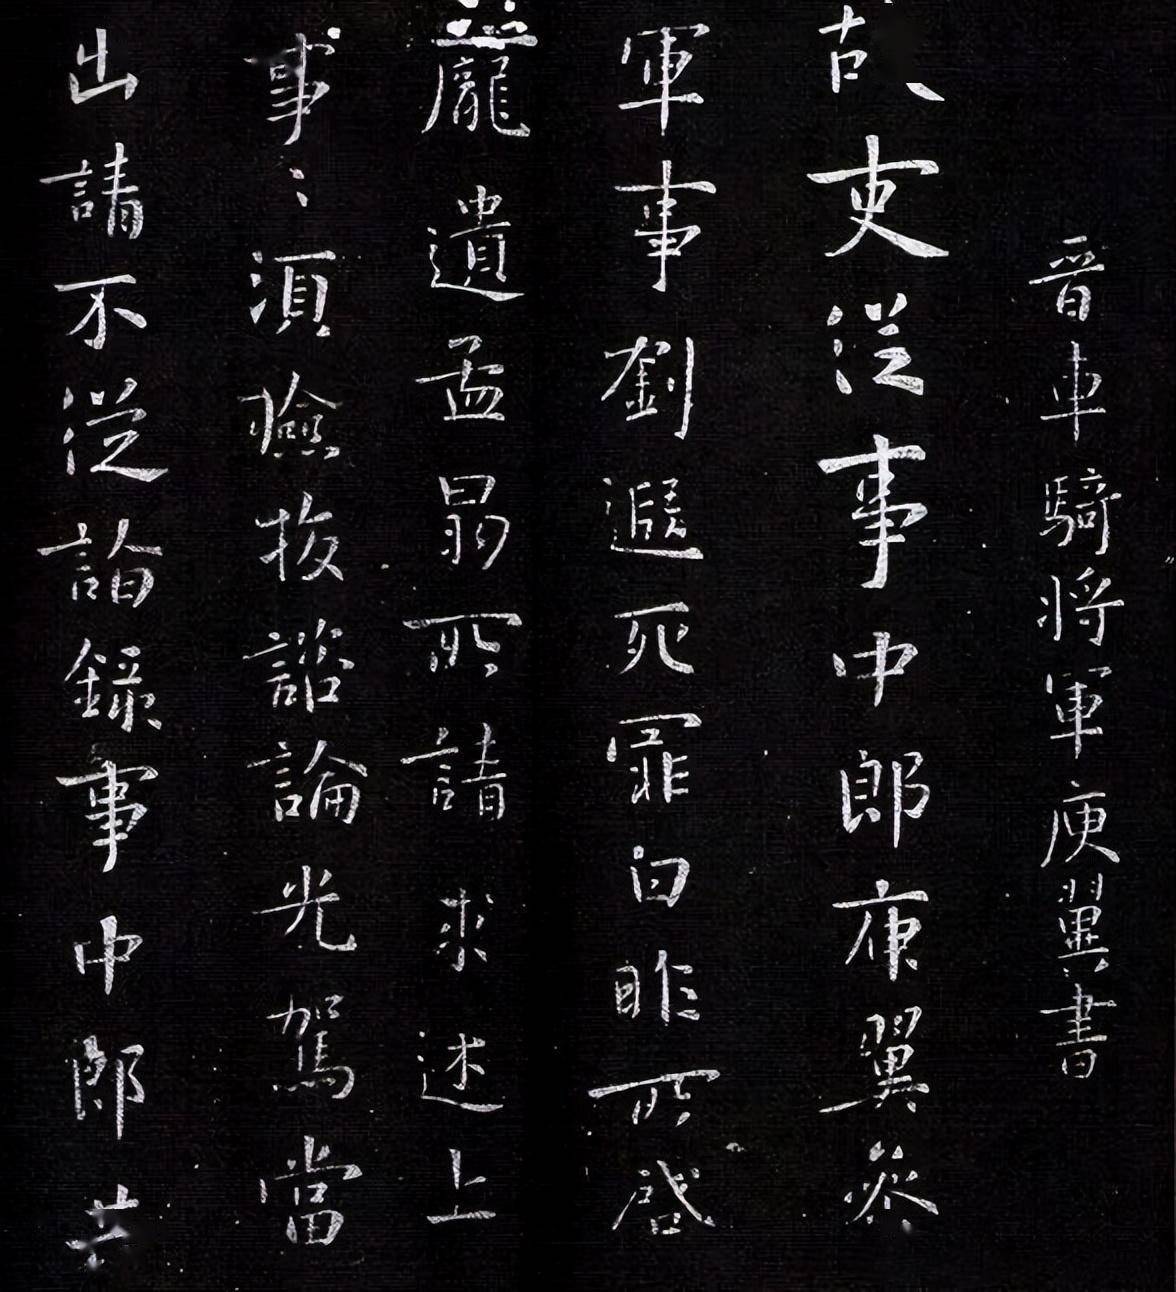 晉車騎將軍庾翼書
故吏從事中郎庾翼參
軍事劉遐死罪白昨所啓
龐遺孟昂所請求述上
事〻須檢校諮論光駕當
出請不從詣錄事中郎共